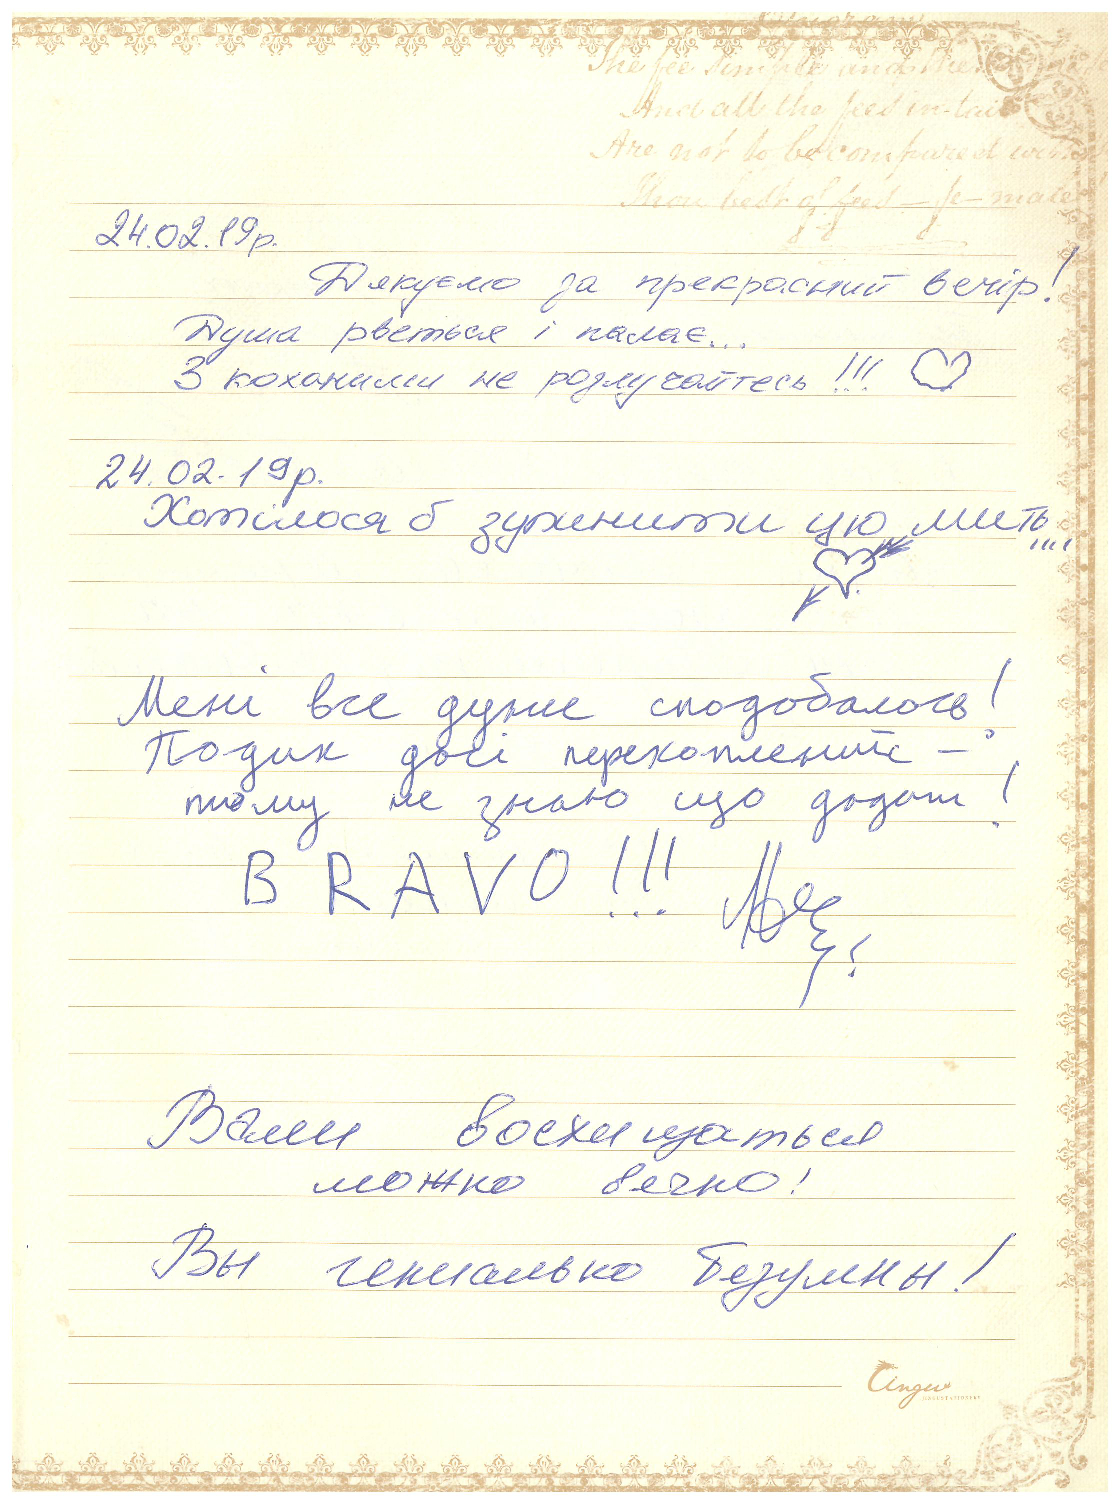 The fee simple and the
And all the fees in-tail
Are not to be compared with
Thou best of fees — fe-male
24.02.19р.
Дякуємо за прекрасний вечір!
Душа рветься і палає...
З коханими не розлучайтесь!!!
24.02.19р.
Хотілося б зупинити цю мить...
Мені все дуже сподобалось!
Подик досі перехоплений –
тому не знаю що додати!
BRAVO!!!
Вами восхищаться
можно вечно!
Вы гениально безумны!